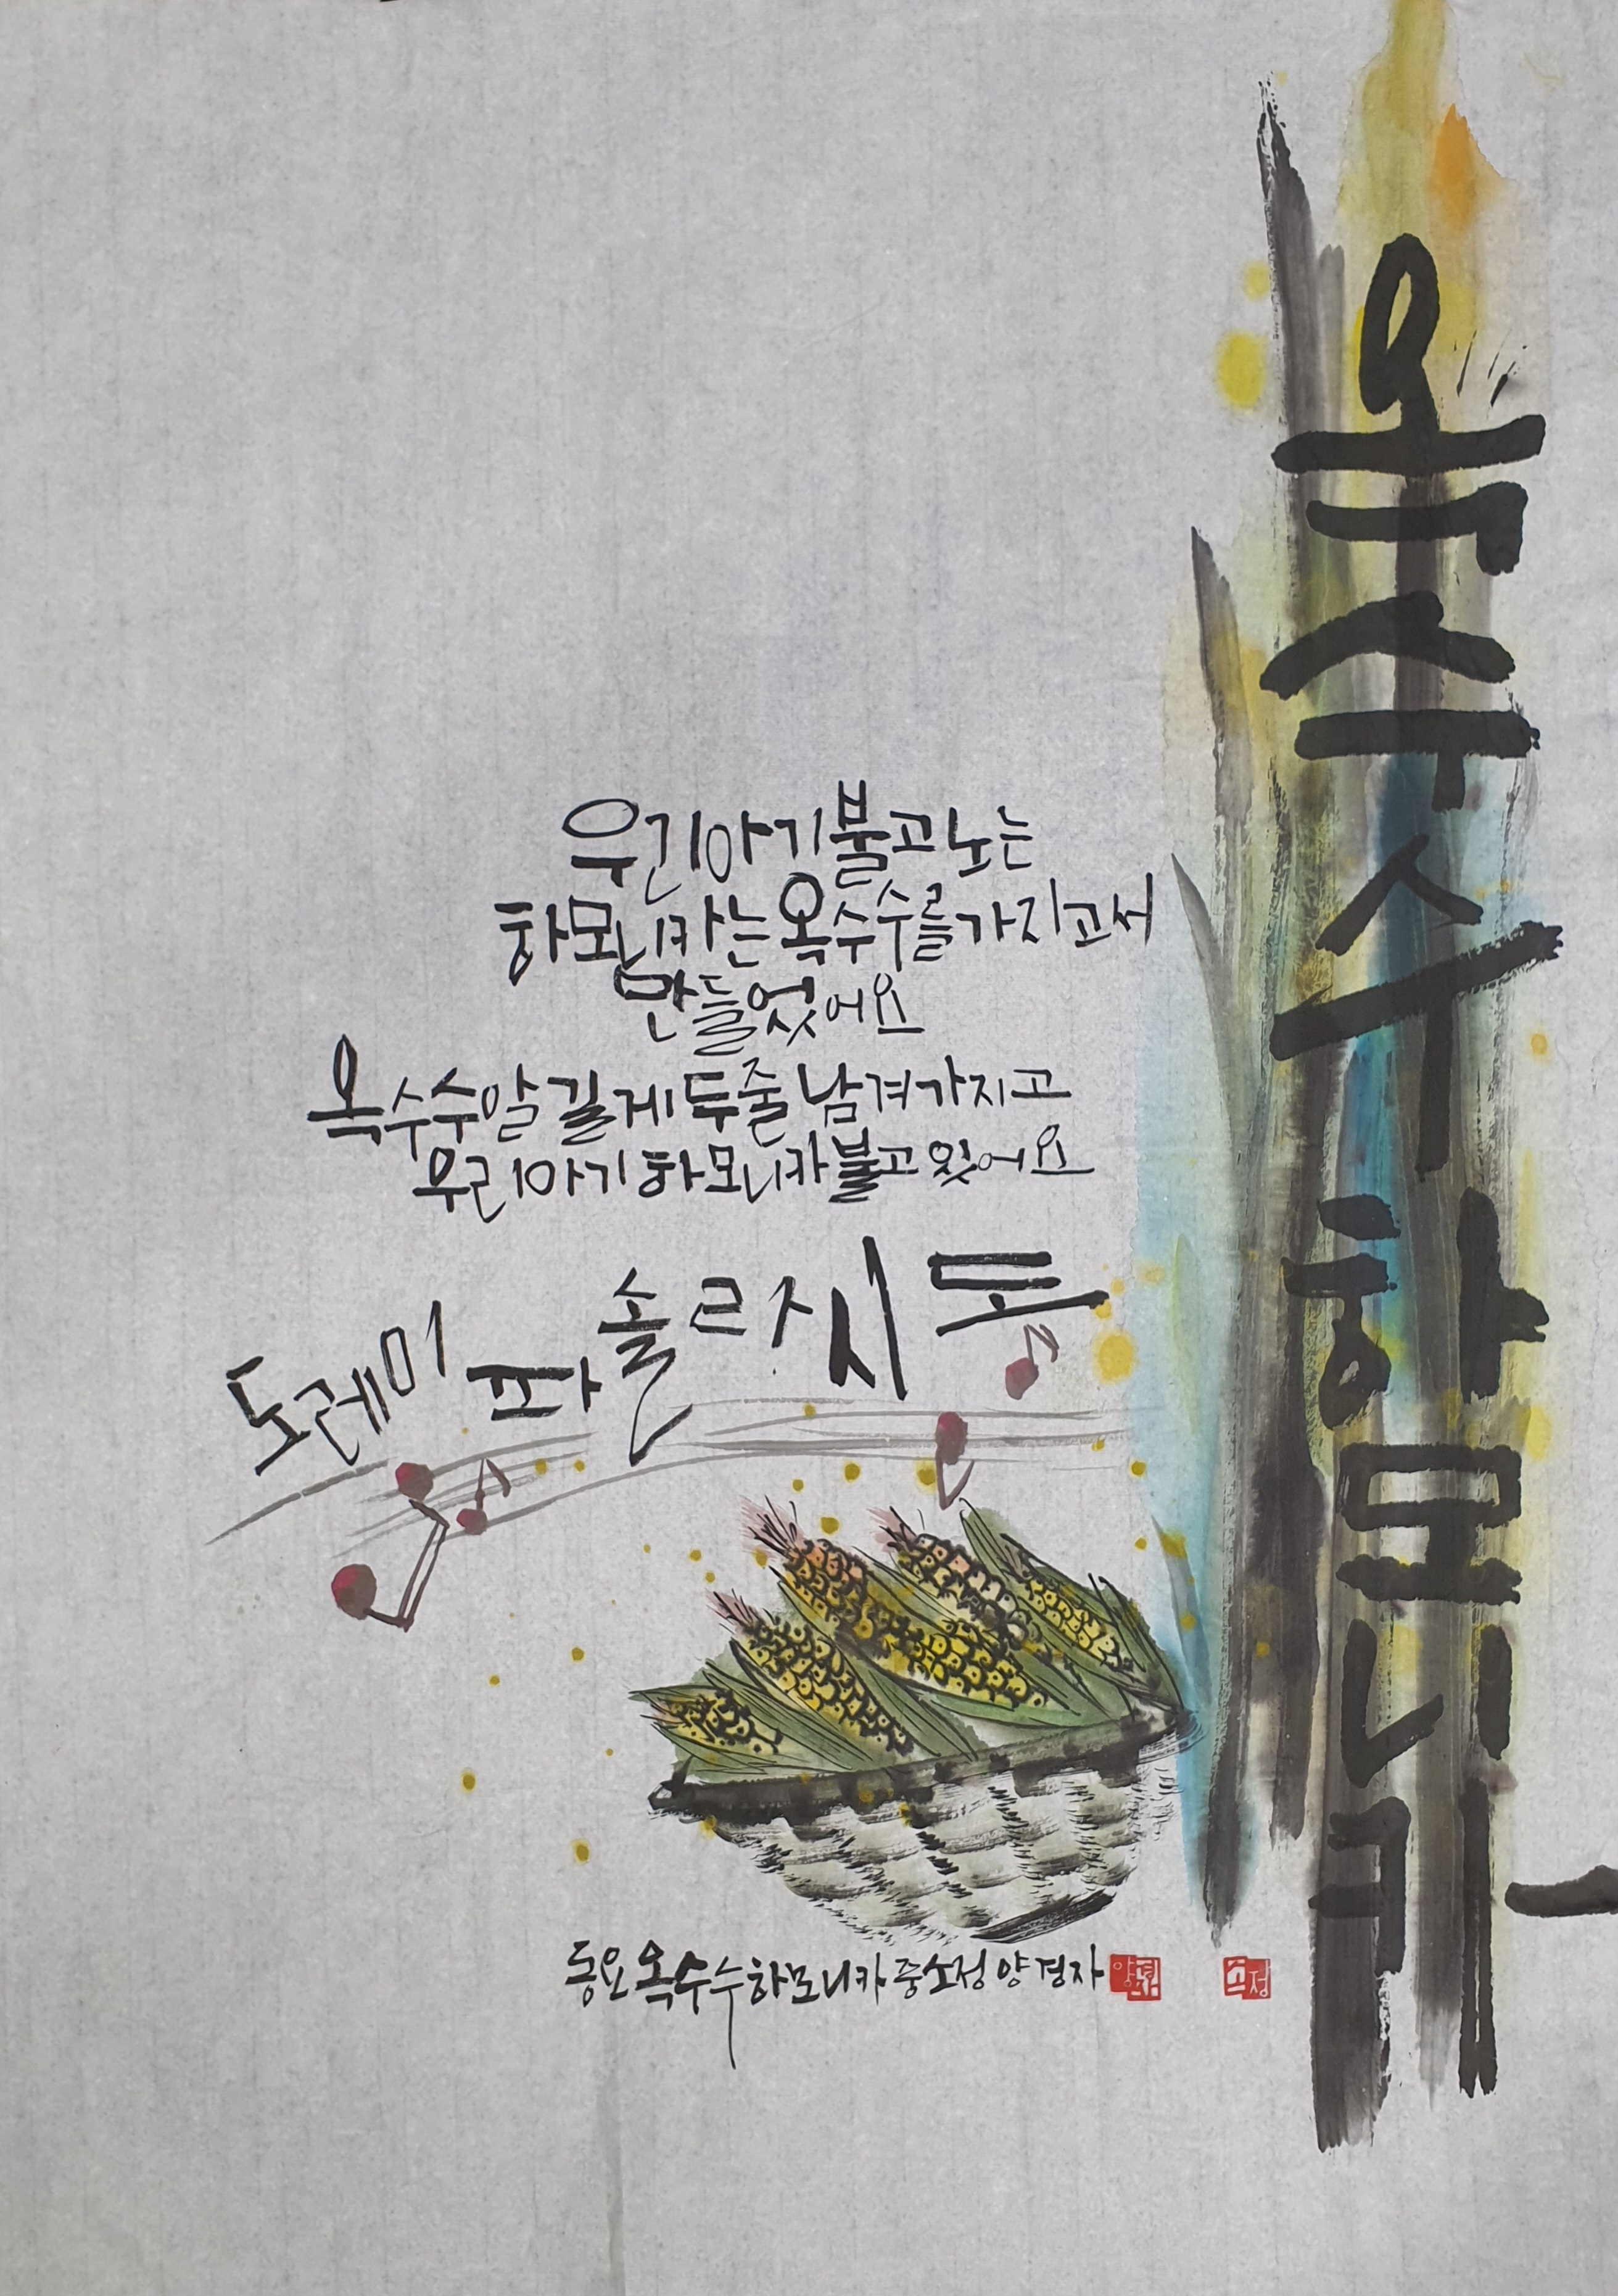 옥수수 하모니카
우리 아기 불고 노는
하모니카는 옥수수를 가지고서
만들었어요
옥수수알 길게 두줄 남겨가지고
우리 아기 하모니카 불고 있어요
도레미파솔라시도
동요 옥수수 하모니카 중 소정 양경자
소정